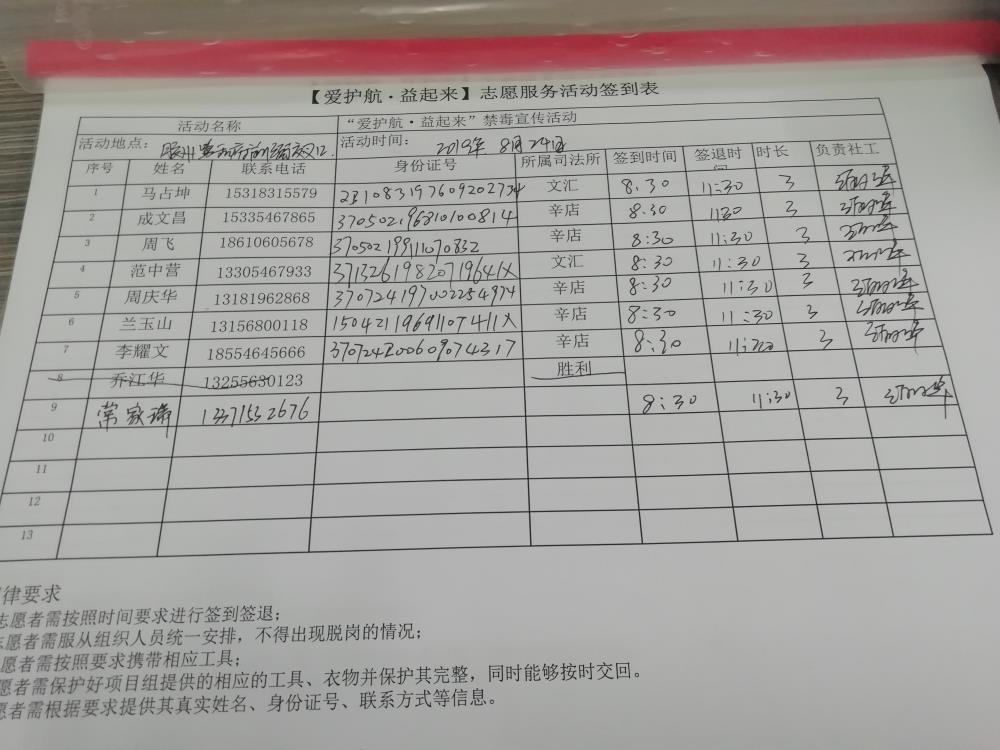 【爱护航·益起来】志愿服务活动签到表
活动名称 “爱护航·益起来”禁毒宣传活动
活动地点： 活动时间： 2019年 8月24日
序号 姓名 联系电话 身份证号 所属司法所 签到时间 签退时间 时长 负责社工
1 马占坤 15318315579 文汇 8.30 11:30 3
2 成文昌 15335467865 辛店 8:30 1130 3
3 周飞 18610605678 370502199111070832 辛店 8:30 11:30 3
4 范中营 13305467933 37132619820719641X 文汇 8:30 11:30 3
5 周庆华 13181962868 370724197002254974 辛店 8:30 11:30 3
6 兰玉山 13156800118 15042119691107411X 辛店 8:30 11:30 3
7 李耀文 18554645666 370724200609074317 辛店 8:30 11:30 3
8 乔江华 13255630123 胜利
9 常家瑞 13371552676 8:30 11:30 3
10
11
12
13
律要求
志愿者需按照时间要求进行签到签退；
志愿者需服从组织人员统一安排，不得出现脱岗的情况；
愿者需按照要求携带相应工具；
愿者需保护好项目组提供的相应的工具、衣物并保护其完整，同时能够按时交回。
愿者需根据要求提供其真实姓名、身份证号、联系方式等信息。